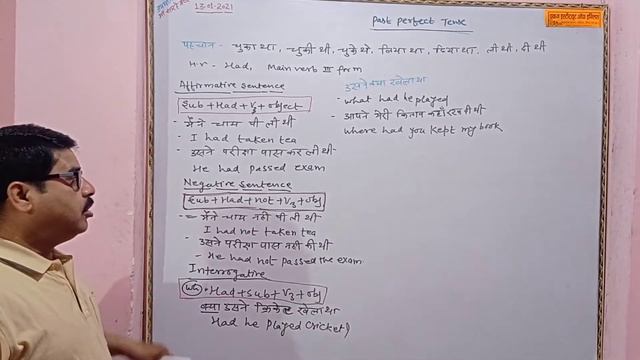 13-01-2021
Past Perfect Tense
पहचान - चुका था, चुकी थी, चुके थे, लिया था, दिया था, ली थी, दी थी
H.V - Had, Main verb III form
Affirmative sentence
Sub + Had + V3 + object
- मैंने चाय पी ली थी
- I had taken tea
- उसने परीक्षा पास कर ली थी
He had passed exam
Negative sentence
Sub + Had + not + V3 + obj
- मैंने चाय नहीं पी ली थी
I had not taken tea
- उसने परीक्षा पास नहीं की थी
- He had not passed the exam
Interrogative
Wh + Had + sub + V3 + obj
क्या उसने क्रिकेट खेला था
Had he played cricket
उसने क्या खेला था
- what had he played
- आपने मेरी किताब कहाँ रख दी थी
where had you kept my book